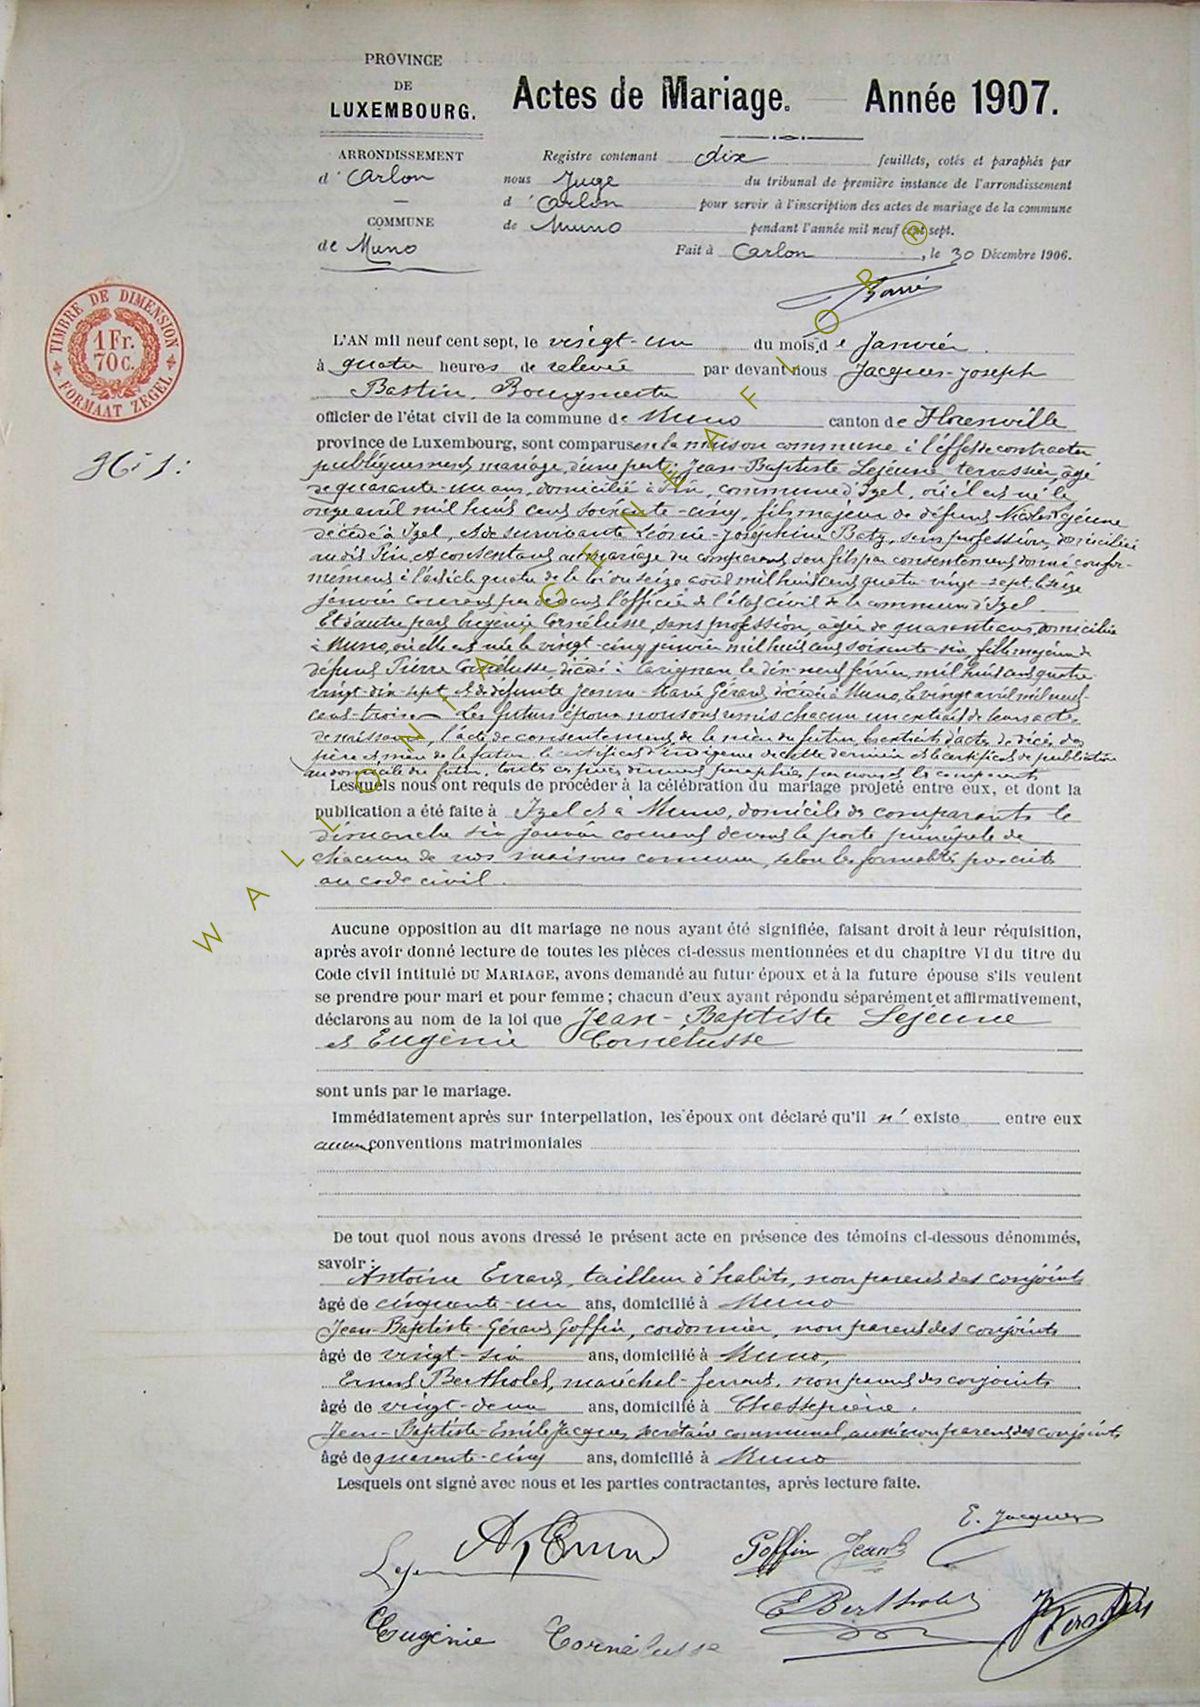 PROVINCE
DE
LUXEMBOURG.
Actes de Mariage. — Année 1907.
ARRONDISSEMENT
d'Arlon
COMMUNE
de Muno
Registre contenant dix feuillets, cotés et paraphés par
nous Juge du tribunal de première instance de l'arrondissement
d'Arlon pour servir à l'inscription des actes de mariage de la commune
de Muno pendant l'année mil neuf cent sept.
Fait à Arlon, le 30 Décembre 1906.
TIMBRE DE DIMENSION
1 Fr.
70 C.
FORMAAT ZEGEL
No 1.
L'AN mil neuf cent sept, le vingt-un du mois de Janvier
à quatre heures de relevée par devant nous Jacques-Joseph
Bastin, Bourgmestre
officier de l'état civil de la commune de Muno canton de Florenville
province de Luxembourg, sont comparus en la maison commune à l'effet de contracter
publiquement mariage, d'une part: Jean-Baptiste Lejeune, terrassier, âgé
de quarante-un ans, domicilié à Pin, commune d'Izel, où il est né le
onze avril mil huit cent soixante-cinq, fils majeur de défunt Nicolas Lejeune
décédé à Izel, et de survivante Léonie-Joséphine Batz, sans profession, domiciliée
au dit Pin, et consentant au mariage du comparant son fils par consentement donné confor-
mément à l'article quatre de la loi du seize août mil huit cent quatre-vingt-sept, le
janvier courant par devant l'officier de l'état civil de la commune d'Izel.
Et d'autre part Eugénie Cornélusse, sans profession, âgée de quarante ans, domiciliée
à Muno, où elle est née le vingt-cinq janvier mil huit cent soixante-six, fille majeure de
défunt Pierre Cornélusse, décédé à Carignan le dix-neuf février mil huit cent quatre
vingt-dix-sept et de défunte Jeanne-Marie Gérard, décédée à Muno, le vingt avril mil neuf
cent-trois. Les futurs époux nous ont remis chacun un extrait de leurs actes
de naissance, l'acte de consentement de la mère du futur, les extraits d'actes de décès des
père et mère de la future, le certificat d'indigence de cette dernière et le certificat de publication
au domicile du futur, toutes ces pièces dûment paraphées par nous et les comparants
Lesquels nous ont requis de procéder à la célébration du mariage projeté entre eux, et dont la
publication a été faite à Izel et à Muno, domicile des comparants le
dimanche six janvier courant devant la porte principale de
chacune de nos maisons commune, selon les formalités prescrits
au code civil.
Aucune opposition au dit mariage ne nous ayant été signifiée, faisant droit à leur réquisition,
après avoir donné lecture de toutes les pièces ci-dessus mentionnées et du chapitre VI du titre du
Code civil intitulé DU MARIAGE, avons demandé au futur époux et à la future épouse s'ils veulent
se prendre pour mari et pour femme ; chacun d'eux ayant répondu séparément et affirmativement,
déclarons au nom de la loi que Jean-Baptiste Lejeune
et Eugénie Cornélusse
sont unis par le mariage.
Immédiatement après sur interpellation, les époux ont déclaré qu'il n'existe entre eux
aucunes conventions matrimoniales
De tout quoi nous avons dressé le présent acte en présence des témoins ci-dessous dénommés,
savoir :
Antoine Errard, tailleur d'habits, non parent des conjoints
âgé de cinquante-un ans, domicilié à Muno
Jean-Baptiste-Gérard Goffin, cordonnier, non parent des conjoints
âgé de vingt-six ans, domicilié à Muno,
Ernest Bertholet, maréchal-ferrant, non parent des conjoints
âgé de vingt-deux ans, domicilié à Chassepierre.
Jean-Baptiste-Emile Jacques, secrétaire communal, aussi non parent des conjoints
âgé de quarante-cinq ans, domicilié à Muno
Lesquels ont signé avec nous et les parties contractantes, après lecture faite.
E. Jacques
Goffin Jean B
E Bertholet
Eugénie Cornélusse
WALLONIA-GENEAFLOR®